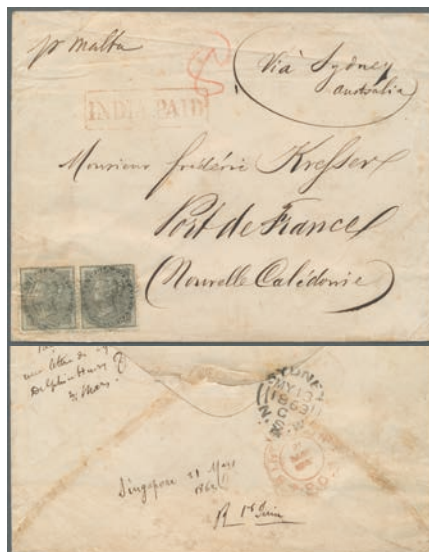 pr Malta
8
Viâ Sydney
australia
INDIA PAID
Monsieur frédéric Kresser
Port de France
(Nouvelle Calédonie)
Delphin Henry
SYDNEY
MY 13
1863
C
N.S.W
Singapore 21 Mars
1863
R 1er Juin